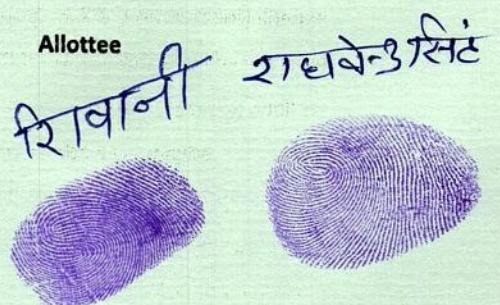 Allottee
शिवानी
राघवेन्उ सिटं